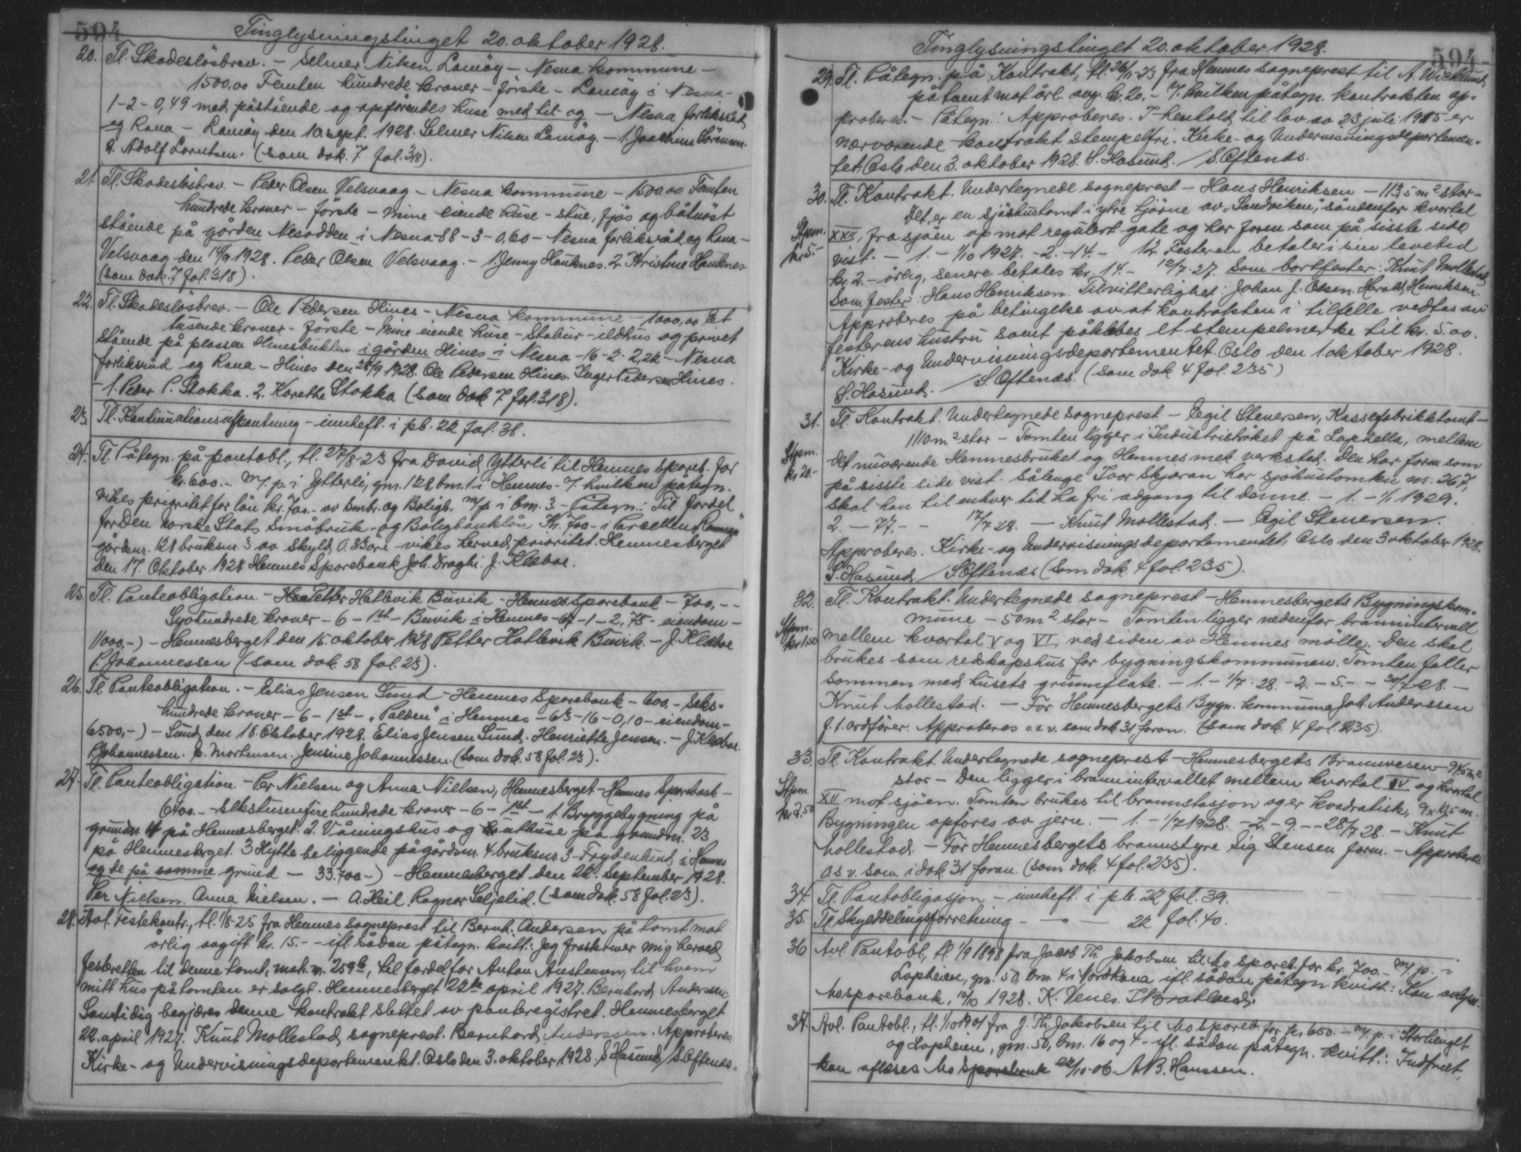 594
Tinglysningstinget 20. oktober 1928.
20. Tl. Skadesløsbrev. – Selmer Nilsen Lamøy – Nesna kommune –
1500,00 Femten hundrede kroner – første – Lamøy i Nesna –
1-2-0,49 med påstående og opførendes huse med lit og – Nesna forliksråd
og Rana – Lamøy den 10 sept. 1928. Selmer Nilsen Lamøy. – 1. Joachim Sörensen
2. Adolf Lorntsen. (som dok. 7 fol. 318).
21. Tl. Skadesløsbrev. – Peder Olsen Velsvaag – Nesna kommune – 1500,00 Femten
hundrede kroner – første – mine eiende huse – stue, fjøs og båtnøst
stående på gården Nesodden i Nesna 88-3-0,60 – Nesna forliksråd og Rana –
Velsvaag den 1928. Peder Olsen Velsvaag. – 1. Jenny Hauknes. 2. Kristine Hauknes
(som dok. 7 fol. 318)
22. Tl. Skadesløsbrev. – Ole Pedersen Hines – Nesna kommune – 1000,00 Et
tusende kroner – første – mine eiende huse – Stabur – ildhus og
stående på plassen Hinesbukten i gården Hines i Nesna – 16-2-2,22 – Nesna
forliksråd og Rana – Hines den 28/9 1928. Ole Pedersen Hines. Inger Pedersen Hines.
– 1. Peder P. Stokka. 2. Korethe Stokka (som dok 7 fol. 318).
23. Tl. Kontinuationsafpantning – innheft. i pb. 22 fol. 38.
24. Tl. Påtegn. på pantobl., tl. 27/8-23 fra David Ytterli til Hennes Spareb. for
kr. 600.– m/p. i Ytterli, gnr. 128 bnr. 1 i Hennes. – 7. hvilken påtegn.
vikes prioritet for lån kr. 700.– av Småb. og Boligb. m/p i bnr. 3 – Påtegn.: Til fordel
for Den norske Stats Småbruk- og Boligbanklån Kr. 700.– i Parsellen
gårdsnr. 128 bruksnr. 3 av skyld 0.33 øre – vikes herved prioritet. Hennesberget
den 17. Oktober 1928 Hennes Sparebank Joh. J. Klæboe.
25. Tl. Panteobligation – Petter Hatlevik Buvik – Hennes Sparebank – 700,–
Syvhundrede kroner – 6 – 1st – Buvik i Hennes – 67-1-2,75 – eiendom –
11000,–) – Hennesberget den 15 oktober 1928 Petter Hatlevik Buvik. – J. Klæboe
P. Johannessen (som dok. 58 fol. 23).
26. Tl. Panteobligation. – Elias Jensen Sund – Hennes Sparebank – 600.– Seks-
hundrede kroner – 6 – 1st – "Palden" i Hennes – 63-16-0,10 – eiendom –
6500,–) – Sund, den 15 Oktober 1928. Elias Jensen Sund. Henriette Jensen. – J. Klæboe.
P. Johannessen. p. Mortensen. Jensine Johannessen (som dok. 58 fol. 23).
27. Tl. Panteobligation – Per Nielsen og Anna Nielsen, Hennesberget – Hennes Sparebank –
6400.– Sekstusenfirehundrede kroner – 6 – 1st – 1 Bryggebygning på
grundnr. på Hennesberget. 2. Våningshus og uthuse på grundnr. 23
på Hennesberget. 3 Hytte beliggende på gårdsnr. 4. bruksnr. 3 – Frydenlund i Hennes
og de på samme grund – 33.700.–) – Hennesberget den 22. September 1928.
Per Nielsen. Anna Nielsen. – A. Heil. Ragnar Seljelid. (som dok. 58 fol. 23).
28. Avl. Festekontr., tl. 1/8-25 fra Hennes sogneprest til Bernh. Andersen på tomt mot
årlig avgift kr. 15.– ifl. sådan påtegn. kvitt: Jeg fraskriver mig herved
festeretten til denne tomt, matr. nr. 259b, til fordel for Anton Austanvær, til hvem
mitt hus på tomten er solgt. Hennesberget 22de april 1927. Bernhard Andersen
Samtidig begjæres denne kontrakt slettet av panteregistret. Hennesberget
22. april 1927. Knut Mollestad sogneprest. Bernhard Andersen. Approberes.
Kirke- og Undervisningsdepartementet. Oslo den 3. oktober 1928. S. Hasund / S. Oftenes.
594
Tinglysningstinget 20. oktober 1928.
29. Tl. Påtegn. på Kontrakt, tl. 26/11-23 fra Hennes sogneprest til A. Wicklund
på tomt mot årl. avg. kr. 20.– 7. hvilken påtegn. kontrakten ap-
proberes. – Påtegn.: Approberes. I henhold til lov av 23 juli 1915 er
nærværende kontrakt stempelfri. Kirke- og Undervisningsdepartemen-
tet, Oslo den 3. oktober 1928. S. Hasund. / S. Oftenes.
30. Tl. Kontrakt. Undertegnede sogneprest – Hans Henriksen – 113,5 m² stor –
Stpm. kr. 5.– det er en sjøhustomt i ytre hjørne av "Sandviken", søndenfor kvartal
XXII, fra sjøen op mot regulert gate og har form som på sisste side
vist. – 1. – 1/10 1927. – 2. – 14. – N. Festeren betaler i sin levetid
kr. 2 – årlig, senere betales kr. 14. – 12/7-27. Som bortfester: Knut Mollestad
Som fester: Hans Henriksen. Til vitterlighet: Johan J. Olsen. Harald Henriksen.
Approberes på betingelse av at kontrakten i tilfelle vedtas av
festerens hustru samt påklebes et stempelmerke til kr. 5.00.
Kirke- og Undervisningsdepartementet. Oslo den 1 oktober 1928.
S. Hasund. / S. Oftenes. (som dok 4 fol. 235)
31. Tl. Kontrakt. Undertegnede sogneprest – Egil Stenersen, Kassefabrikktomt –
Stpm. kr. 20.– 1110 m² stor – Tomten ligger i Industristrøket på Laphella, mellem
det nuværende Hennesbruket og Hennes mek. verksted. Den har form som
på sisste side vist. Sålenge Ivar Skjæran har sjøhustomten nr. 267,
skal han til enhver tid ha fri adgang til denne – 1. – 1/1 1929.
2. – 77. – – 17/7 28. – Knut Mollestad. – Egil Stenersen.
Approberes. Kirke- og Undervisningsdepartementet, Oslo den 3 oktober 1928.
S. Hasund / S. Oftenes (som dok. 4 fol. 235).
32. Tl. Kontrakt. Undertegnede sogneprest – Hennesbergets Bygningskom-
Stpm. kr. 1.50 mune – 50 m² stor – Tomten ligger nedenfor brannintervall
mellem kvartal V og VI, ved siden av Hennes mølle. Den skal
brukes som redskapshus for bygningskommunen. Tomten faller
sammen med husets grunnflate. – 1. – 1/7 28. – 2. – 5. – – 20/7 28 –
Knut Mollestad. – For Hennesbergets Bygn. kommune Joh. Anderssen
f. t. ordfører. Approberes o.s.v. som dok 31 foran. (som dok. 4 fol. 235).
33. Tl. Kontrakt Undertegnede sogneprest – Hennesbergets Brannvesen –
Stpm. kr. 2.50 stor – Den ligger i brannintervallet mellem kvartal IV og kvartal
XII mot sjøen. Tomten brukes til brannstasjon og er kvadratisk,
Bygningen opføres av jern. – 1. – 1/7 1928. – 2. – 9. – – 28/7 28. – Knut
Mollestad. – For Hennesbergets brannstyre Sig Stensen form. – Approberes
o.s.v. som i dok 31 foran. (som dok. 4 fol. 235).
34. Tl. Pantobligasjon – innheft. i pb. 22 fol. 39.
35. Tl Skylddelingsforretning – – " – 22 fol. 40.
36 Avl. Pantobl., tl. 1/9 1898 fra Jacob Th. Jakobsen til Mo Spareb. for kr. 700.– m/p. i
Lapheien, gnr. 50, bnr. 4 i Nordrana ifl. sådan påtegn kvitt: Kan avlyses.
Mo sparebank, 1928. K. Venes. T. Bratland.
37. Avl. Pantobl., tl. 1/10 1901 fra J. Th. Jakobsen til Mo Spareb for kr. 650.– m/p. i Storlienget
og Lapheien, gnr. 50, bnr. 16 og 4 – ifl. sådan påtegn. kvitt.: Indfriet,
kan aflæses Mo Sparebank 22/10-06. A. B. Hanssen.